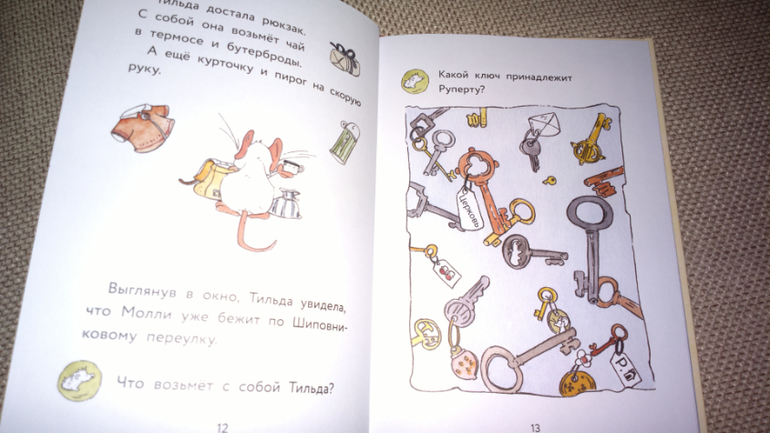 Тильда достала рюкзак.
С собой она возьмёт чай
в термосе и бутерброды.
А ещё курточку и пирог на скорую
руку.
Выглянув в окно, Тильда увидела,
что Молли уже бежит по Шиповни-
ковому переулку.
Что возьмёт с собой Тильда?
12
Какой ключ принадлежит
Руперту?
Церковь
Р.
13